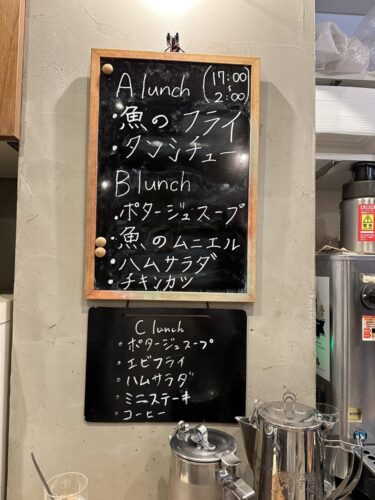 A lunch (17:00
~
2:00)
・魚のフライ
・タンシチュー
B lunch
・ポタージュスープ
・魚のムニエル
・ハムサラダ
・チキンカツ
C lunch
・ポタージュスープ
・エビフライ
・ハムサラダ
・ミニステーキ
・コーヒー